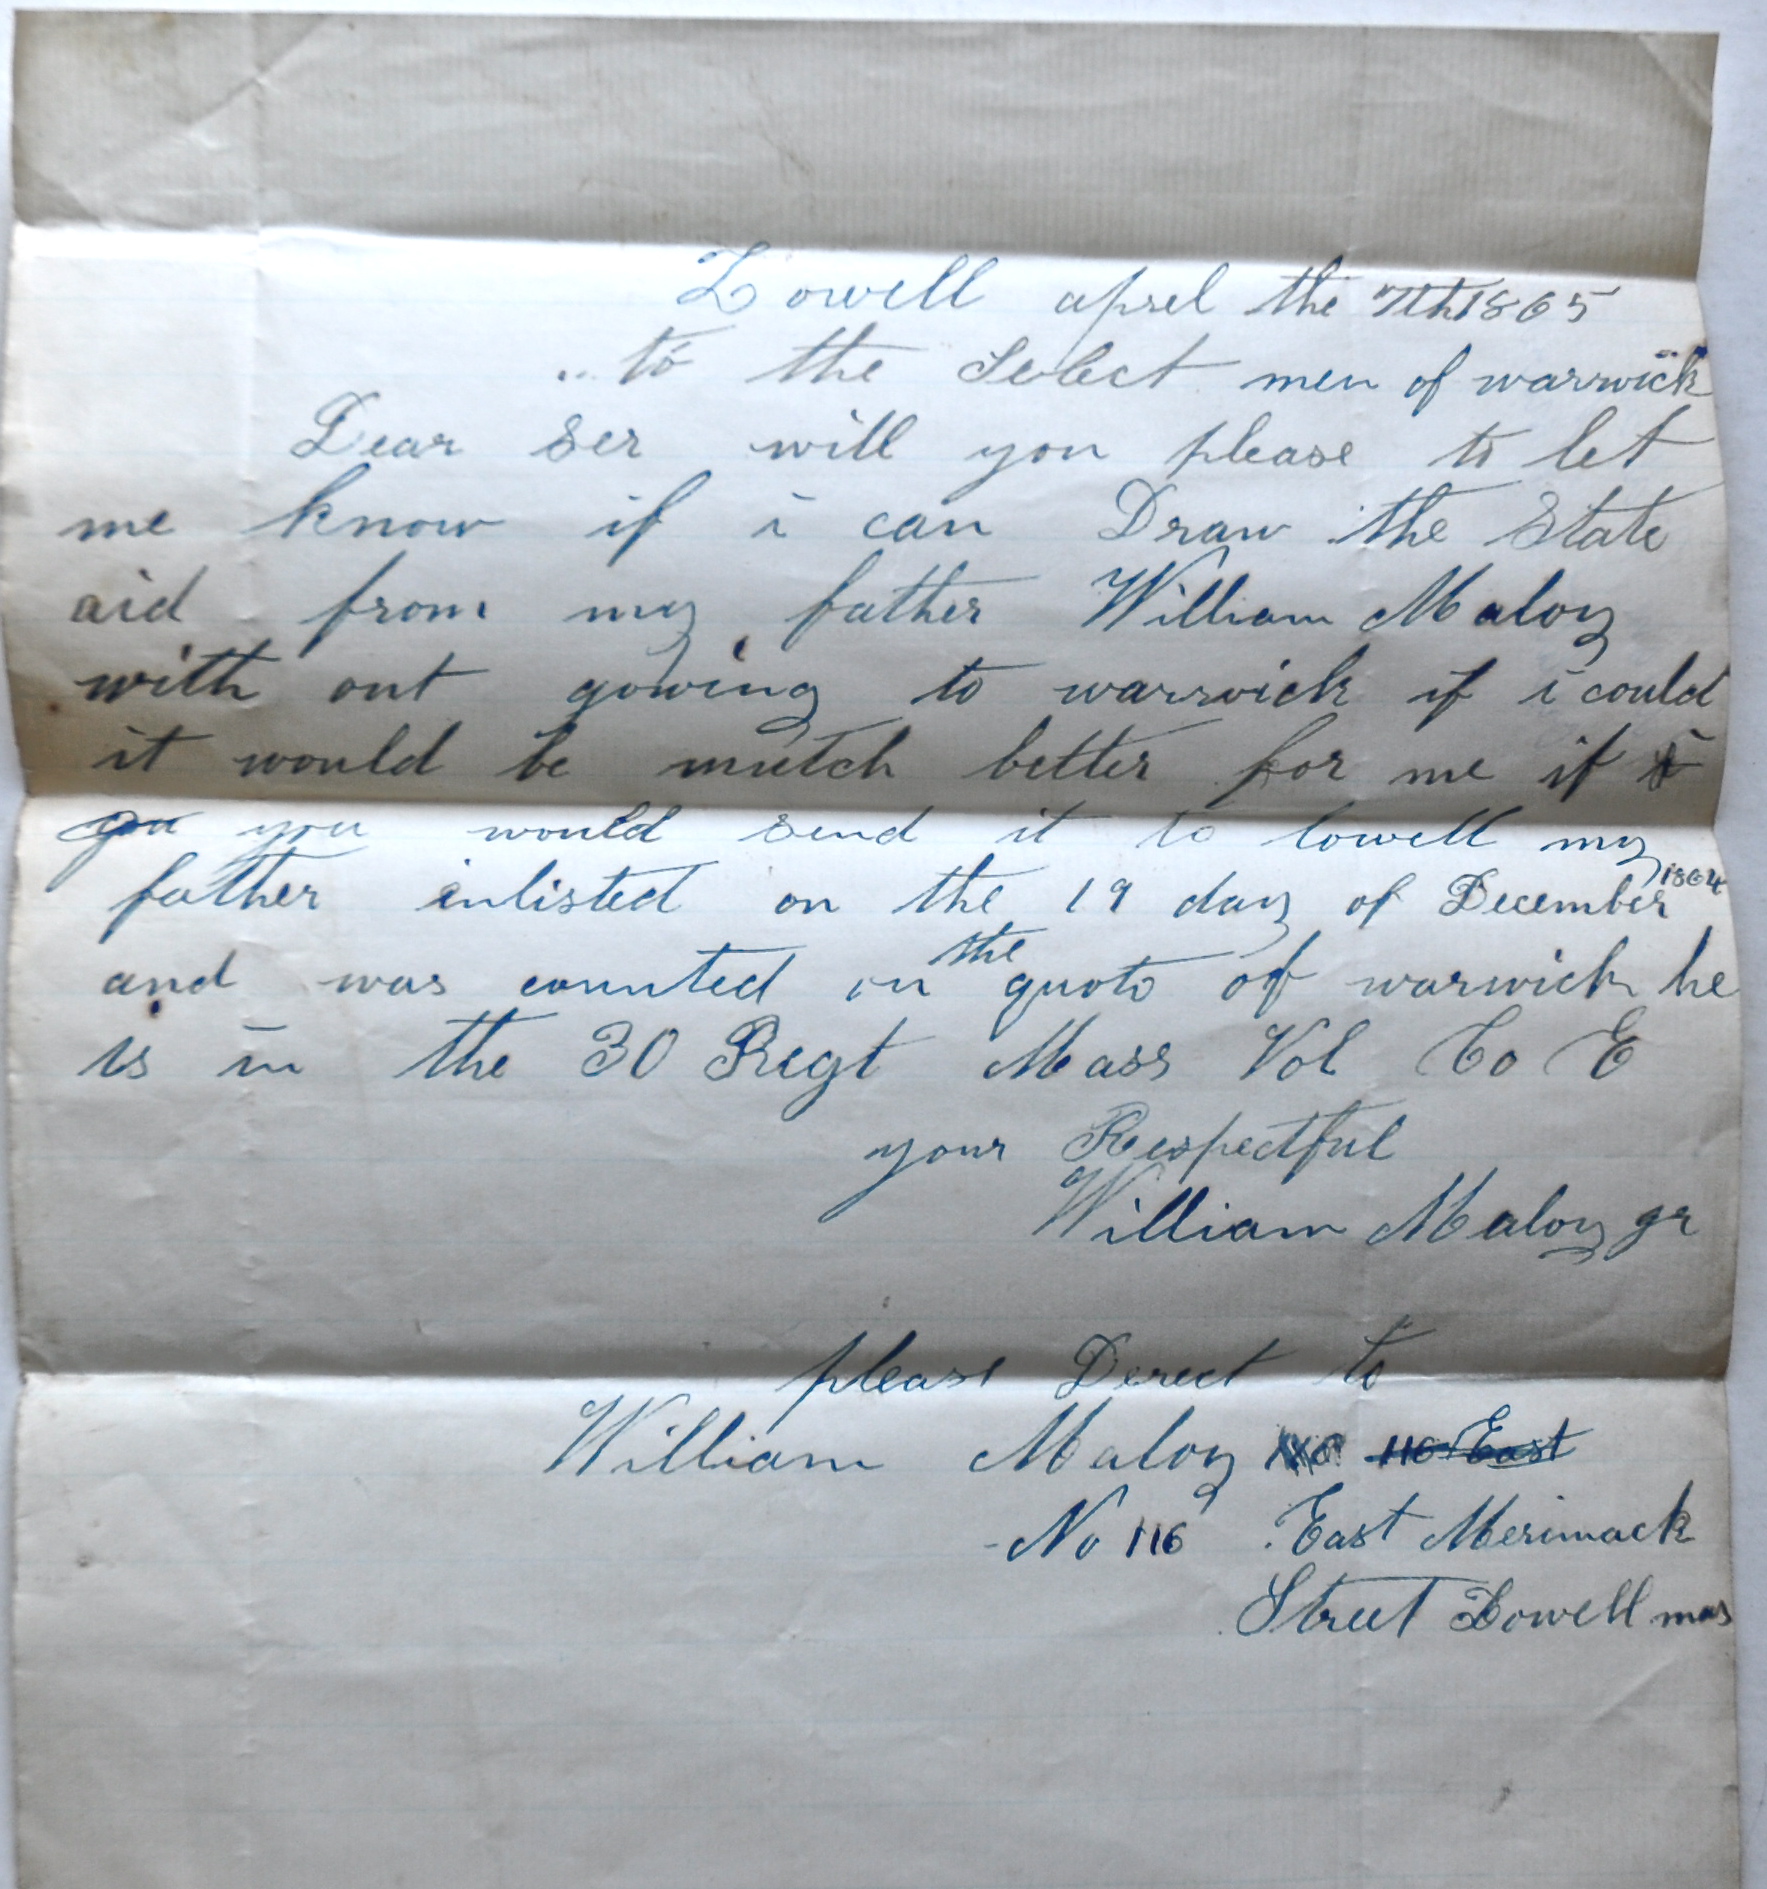 Lowell aprel the 7th 1865
to the Select men of warwick
Dear Ser will you please to let
me know if i can Draw the State
aid from my father William Maloy
with out gowing to warwick if i could
it would be mutch better for me if i
you would send it to lowell my
father inlisted on the 19 day of December 1864
and was counted in the quoto of warwick he
is in the 30 Regt Mass Vol Co E
your Respectful
William Maloy gr
please Derect to
William Maloy No 116 East
No 116 East Merimack
Street Lowell mas